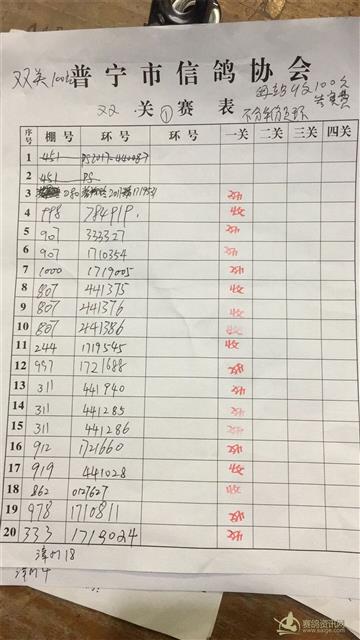 双关100
普宁市信鸽协会
双关①赛表
每站收100元
不分年份足环
序号 棚号 环号 环号 一关 二关 三关 四关
1 451
2 451 PS
3
4 998 784919
5 907 333327
6 907 1710354
7 1000 1719005
8 807 441375
9 807 441376
10 807 441386
11 244 1719545
12 997 1721688
13 311 441940
14 311 441285
15 311 441286
16 912 1721660
17 919 441028
18 862 0127627
19 978 1710811
20 333 1719024
漳州18
漳州4
赛鸽资讯网
www.saige.com